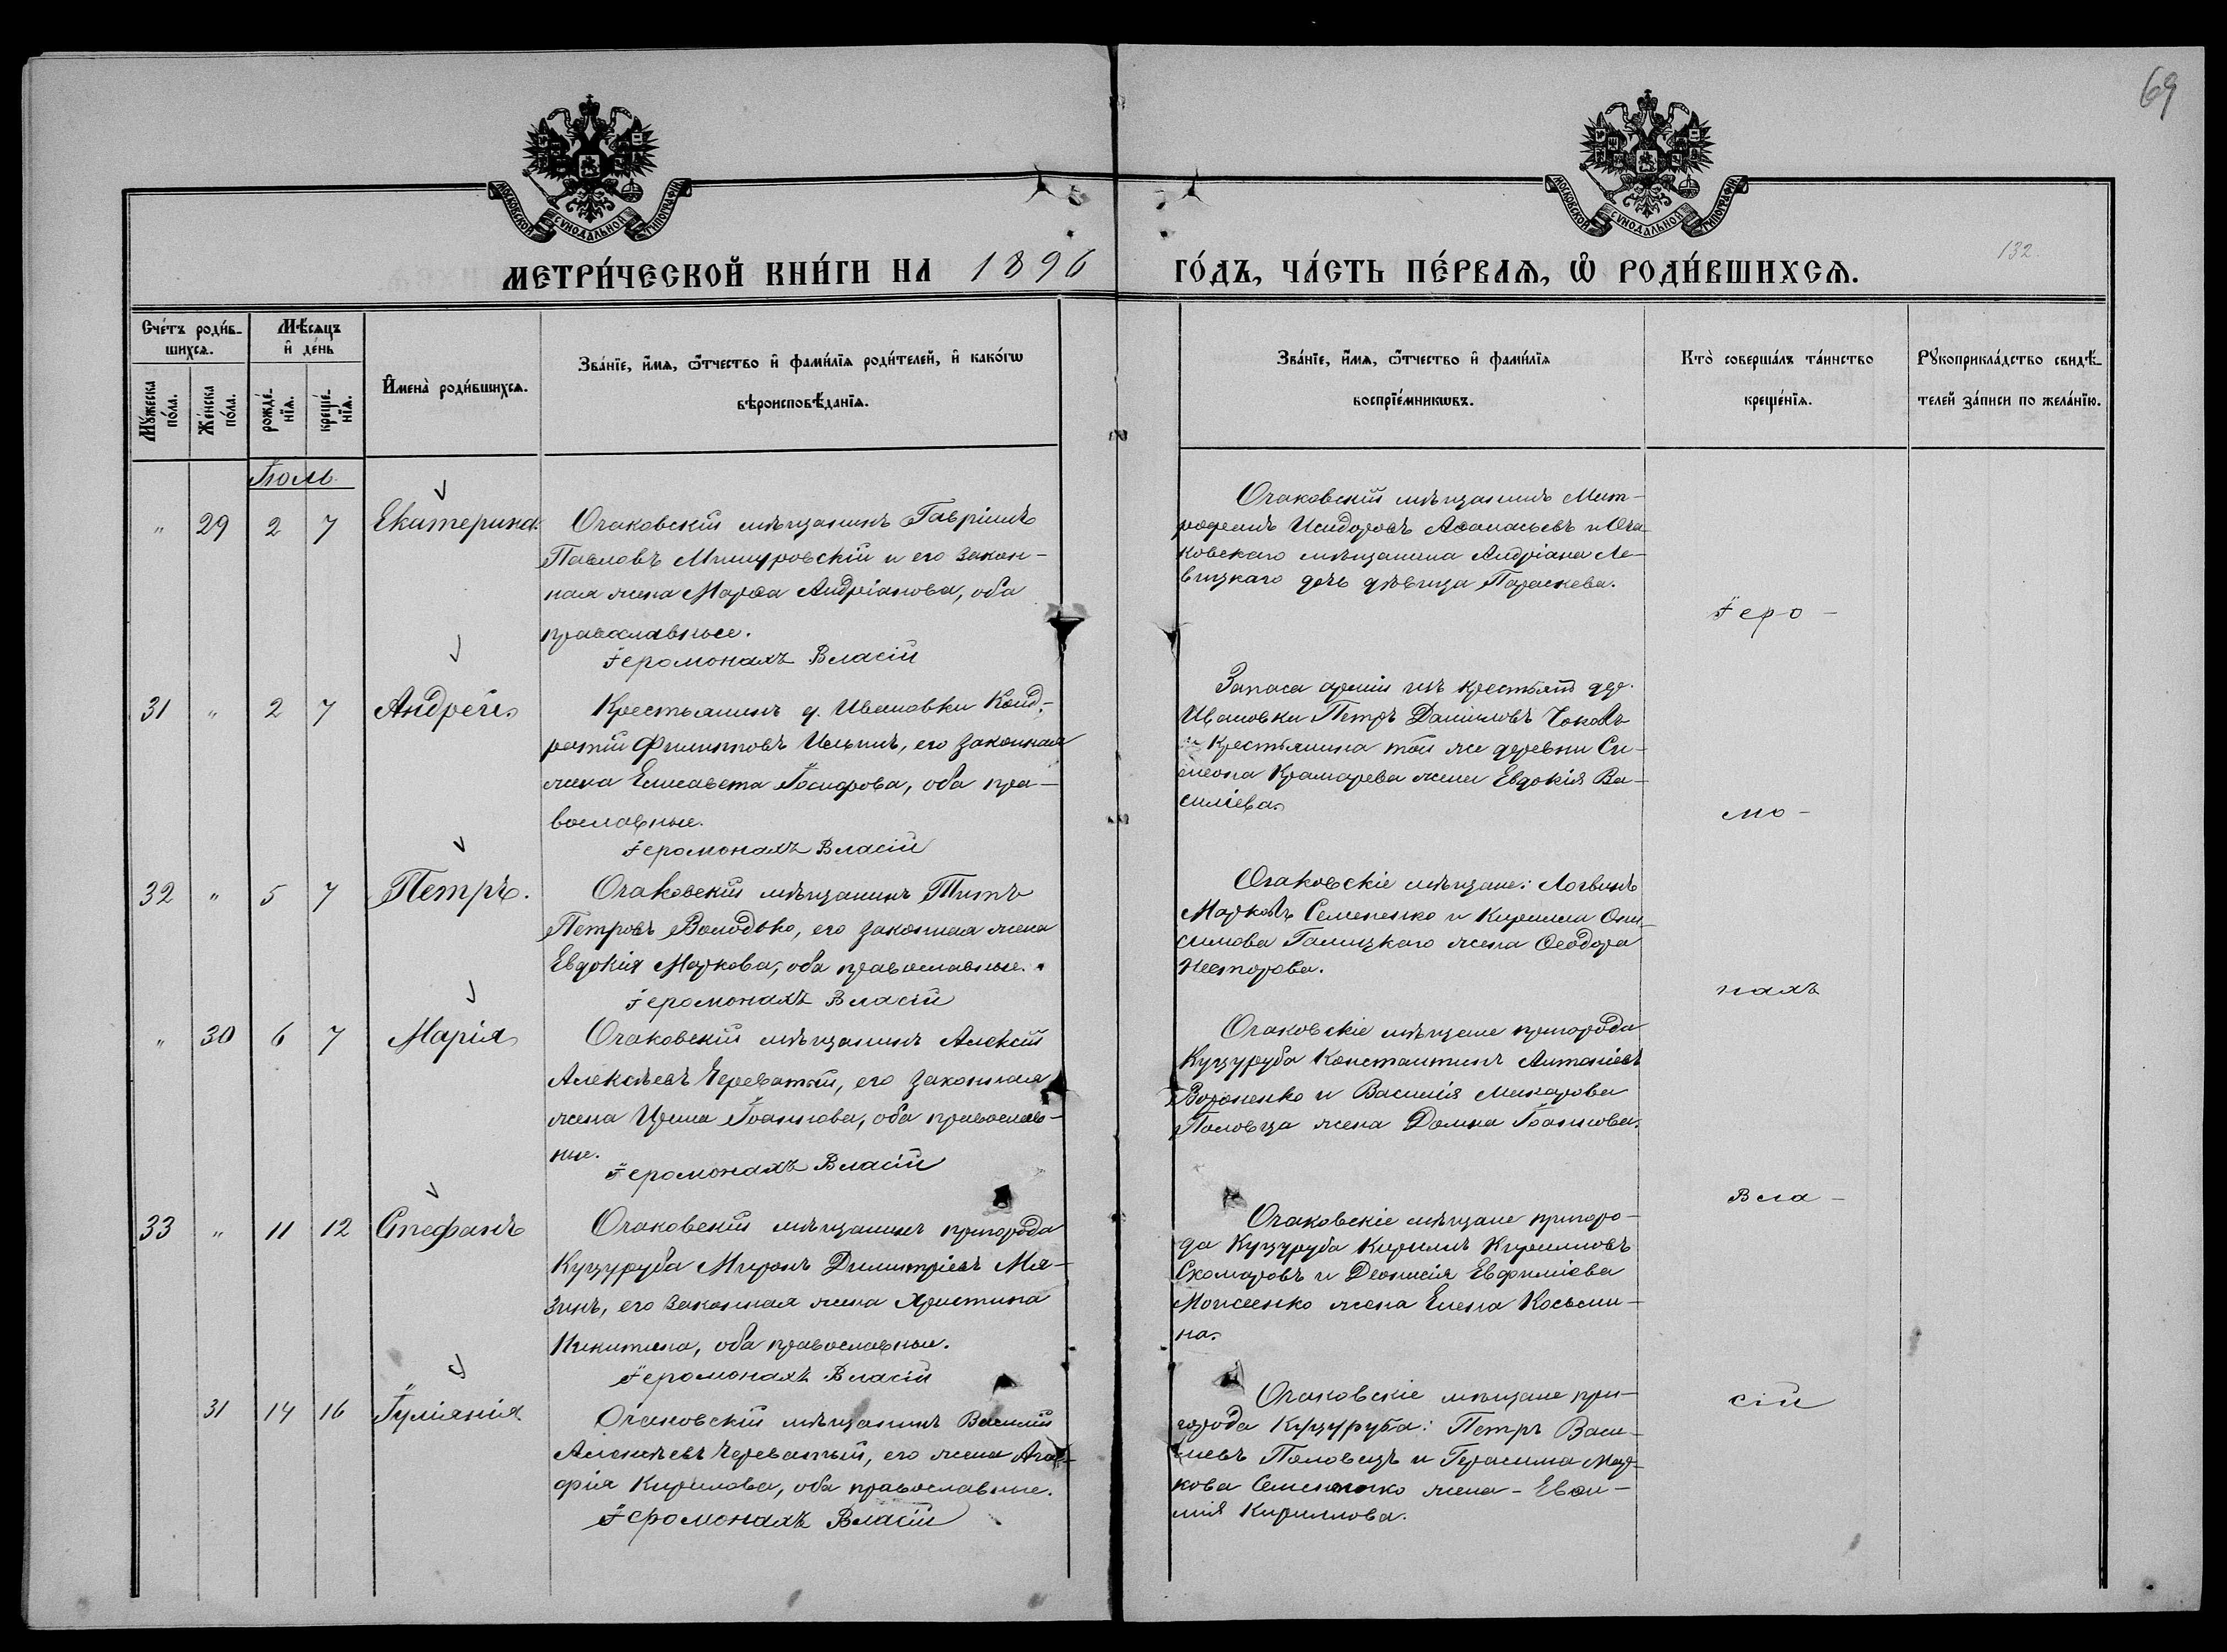 69
МОСКОВСКОЙ СѴНОДАЛЬНОЙ ТИПОГРАФІИ
МОСКОВСКОЙ СѴНОДАЛЬНОЙ ТИПОГРАФІИ
132.
МЕТРИ́ЧЕСКОЙ КНИ́ГИ НА 1896 ГО́ДЪ, ЧА́СТЬ ПЕ́РВАѦ, Ѡ҆ РОДИ́ВШИХСѦ.
Сче́тъ роди́в-
шихсѧ.
Мꙋ́жеска
по́ла.
Же́нска
по́ла.
Мѣ́сѧцъ
и҆ де́нь
рожде́-
нїѧ.
креще́-
нїѧ.
И҆мена̀ роди́вшихсѧ.
Зва́нїе, и҆́мѧ, ѻ҆́тчество и҆ фами́лїѧ роди́телей, и҆ како́гѡ
вѣроисповѣ́данїѧ.
Зва́нїе, и҆́мѧ, ѻ҆́тчество и҆ фами́лїѧ
воспрїе́мникѡвъ.
Кто̀ соверша́лъ та́инство
креще́нїѧ.
Рꙋкоприкла́дство свидѣ́-
телей за́писи по жела́нїю.
Іюль
" 29 2 7 Екатерина.
Очаковскій мѣщанинъ Гавріилъ
Павловъ Мишуровскій и его закон-
ная жена Марѳа Андріанова, оба
православные.
Іеромонахъ Власій
Очаковскій мѣщанинъ Мит-
рофанъ Исидоровъ Аѳанасьевъ и Оча-
ковскаго мѣщанина Андріана Ле-
вицкаго дочь дѣвица Параскева.
Іеро-
31 " 2 7 Андрей
Крестьянинъ д. Ивановки Конд-
ратій Филипповъ Ильинъ, его законная
жена Елисавета Іосифова, оба пра-
вославные.
Іеромонахъ Власій
Запаса арміи изъ крестьянъ дер.
Ивановки Петръ Даниловъ
и Крестьянина той же деревни Си-
меона Крамарева жена Евдокія Ва-
силіева.
мо-
32 " 5 7 Петръ.
Очаковскій мѣщанинъ Титъ
Петровъ Володько, его законная жена
Евдокія Маркова, оба православные.
Іеромонахъ Власій
Очаковскіе мѣщане: Логвинъ
Марковъ Семененко и Кирилла Они-
симова Галицкаго жена Ѳеодора
Несторова.
нахъ
" 30 6 7 Марія
Очаковскій мѣщанинъ Алексій
Алексѣевъ Череватый, его законная
жена Ирина Іоаннова, оба православ-
ные.
Іеромонахъ Власій
Очаковскіе мѣщане пригорода
Куцуруба Константинъ Антоніевъ
Вороненко и Василія Макарова
Половца жена Домна Іоаннова.
Вла-
33 " 11 12 Стефанъ
Очаковскій мѣщанинъ пригорода
Куцуруба Миронъ Димитріевъ Мя-
зинъ, его законная жена Христина
Никитина, оба православные.
Іеромонахъ Власій
Очаковскіе мѣщане пригоро-
да Куцуруба Кириллъ Кирилловъ
Скомаровъ и Діонисія Евфиміева
Моисеенко жена Елена Косьми-
на.
31 14 16 Іуліанія
Очаковскій мѣщанинъ Василій
Алексѣевъ Череватый, его жена Ага-
фія Кирилова, оба православные.
Іеромонахъ Власій
Очаковскіе мѣщане при-
города Куцуруба: Петръ Васи-
лиевъ Половецъ и Герасима Мар-
кова Семененко жена - Евѳи-
мія Кириллова.
сій